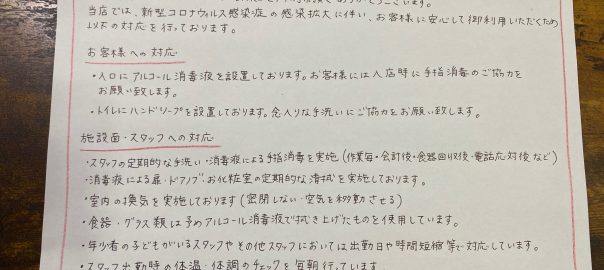 当店では、新型コロナウィルス感染症の感染拡大に伴い、お客様に安心して御利用いただくため
以下の対応を行っております。
お客様への対応
・入口にアルコール消毒液を設置しております。お客様には入店時に手指消毒のご協力を
お願い致します。
・トイレにハンドソープを設置しております。念入りな手洗いにご協力をお願い致します。
施設面・スタッフへの対応
・スタッフの定期的な手洗い・消毒液による手指消毒を実施(作業毎・会計後・食器回収後・電話応対後など)
・消毒液による扉・ドアノブ、お化粧室の定期的な清拭を実施しております。
・室内の換気を実施しております(密閉しない・空気を移動させる)
・食器・グラス類は予めアルコール消毒液で拭き上げたものを使用しています。
・年少者の子どもがいるスタッフやその他スタッフにおいては出勤日や時間短縮等で対応しています。
・スタッフ出勤時の体温・体調のチェックを毎朝行っています